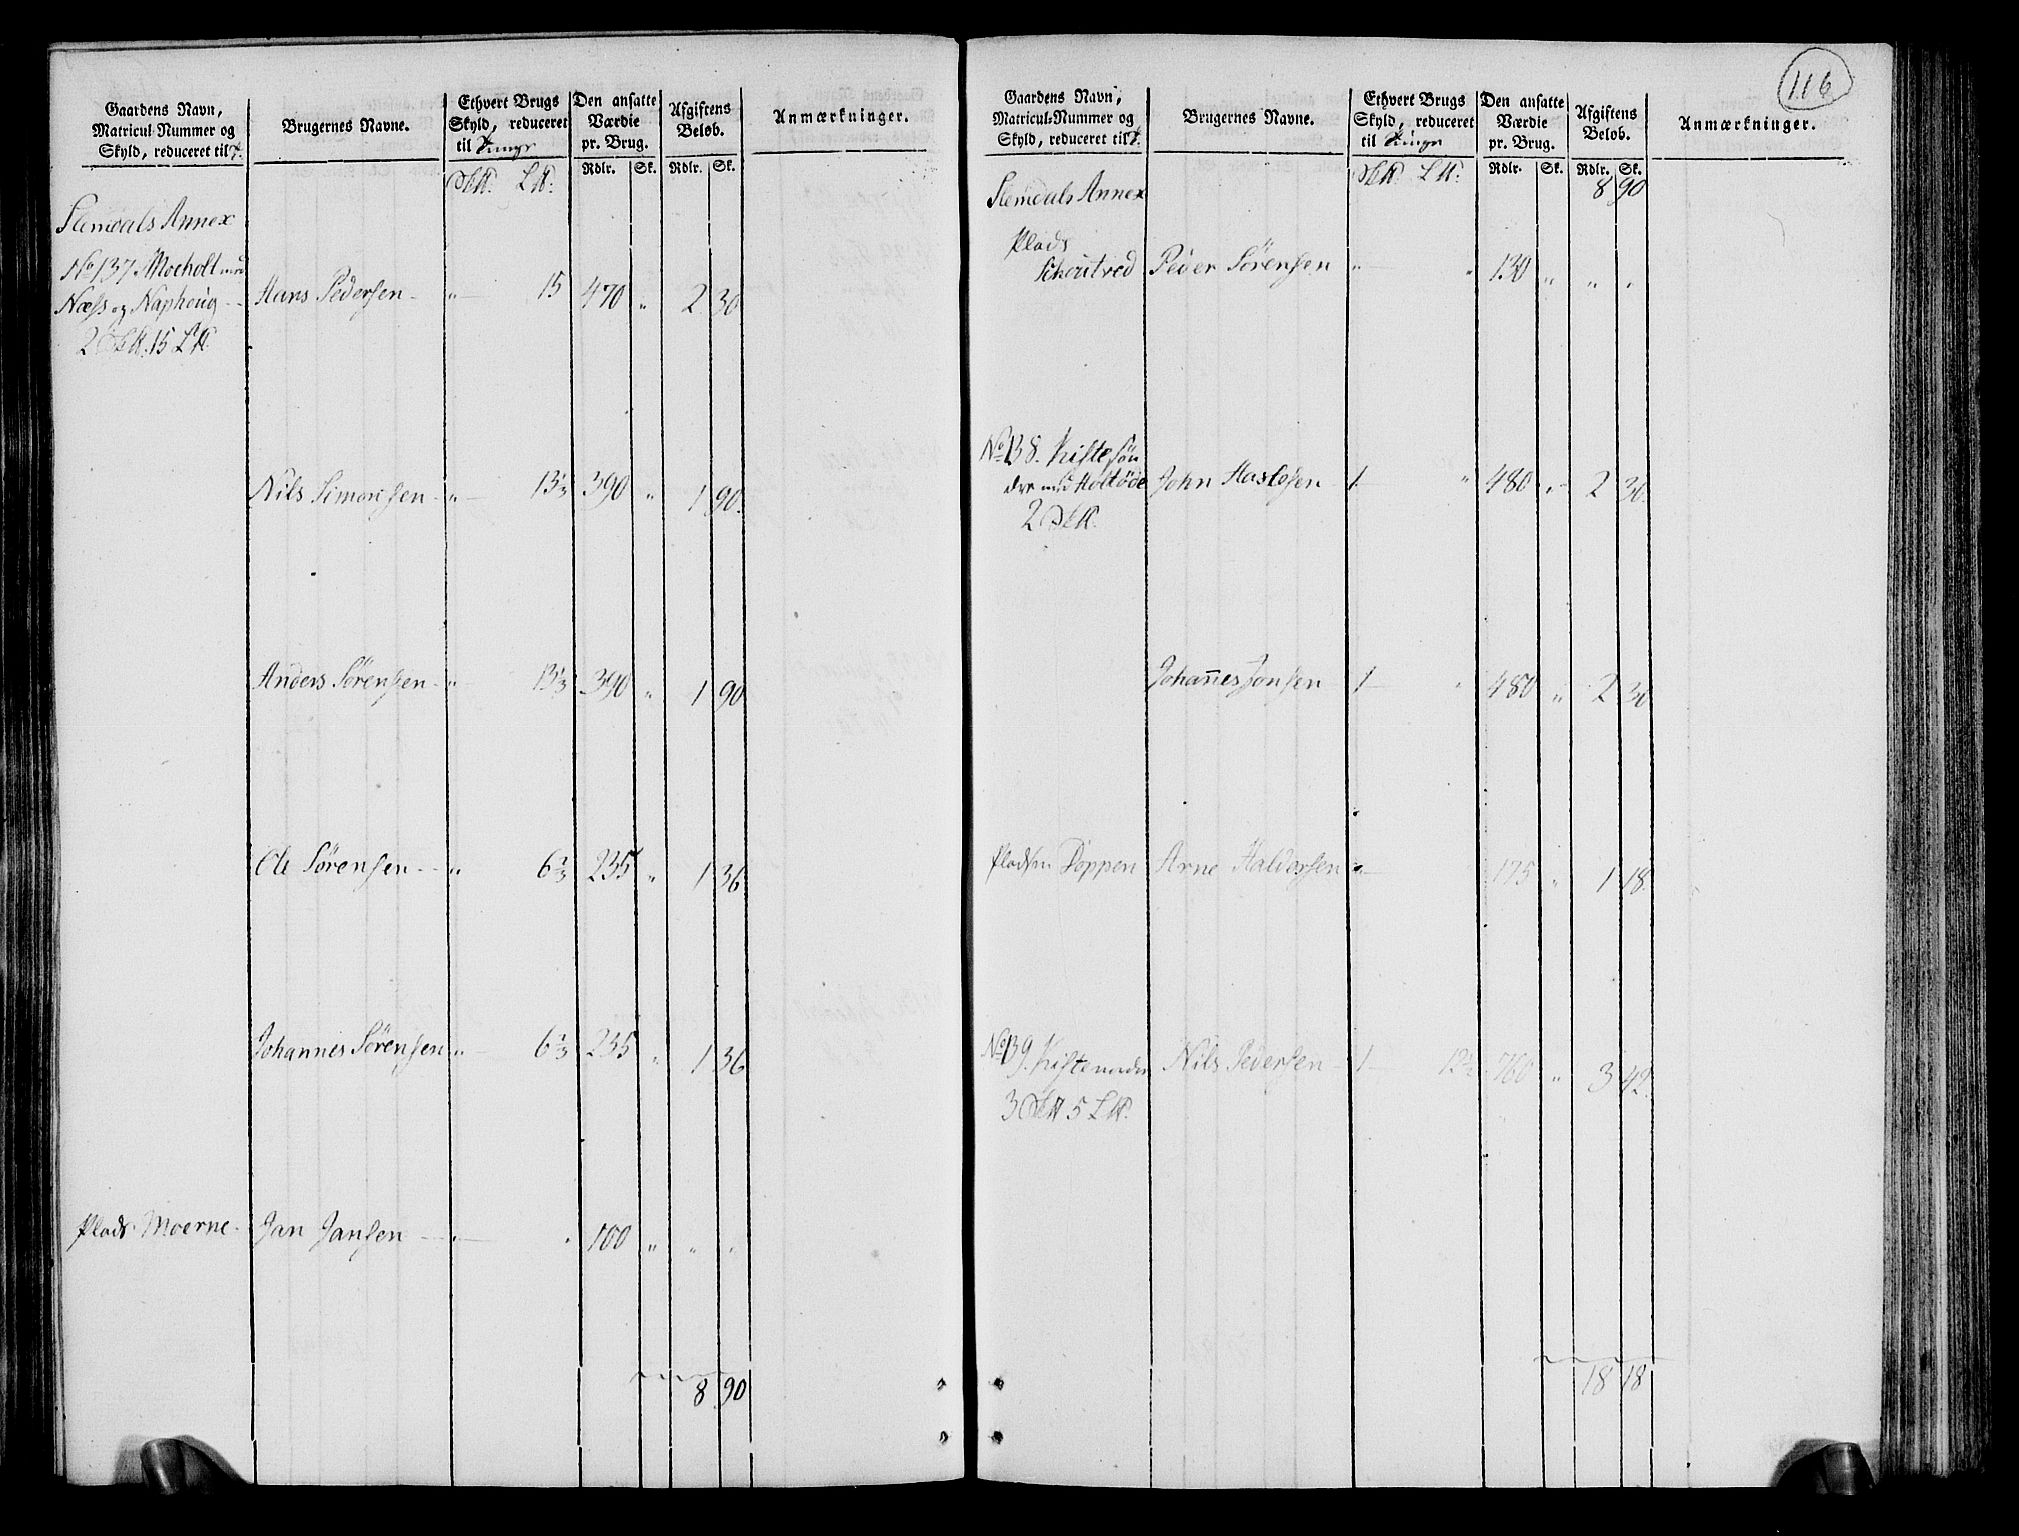 116
Gaardens Navn, Matricul-Nummer og Skyld, reduceret til
Brugernes Navne.
Ethvert Brugs Skyld, reduceret til Tunge
Den ansatte Værdie pr. Brug.
Afgiftens Beløb.
Anmærkninger.
Rdlr. Sk. Rdlr. Sk.
Slemdals Annex
No 137 Moeholt med
Næss og Naphoug - Hans Pedersen - " 15 470 " 2 30
2 15
Nils Simonsen - " 13⅓ 390 " 1 90.
Anders Sørensen - " 13⅓ 390 " 1 90
Ole Sørensen - " 6⅔ 235 " 1 36
Johannes Sørensen " 6⅔ 235 " 1 36
Plads Moerne - Jan Jansen - " " 100 " " "
8 90
Gaardens Navn, Matricul-Nummer og Skyld, reduceret til
Brugernes Navne.
Ethvert Brugs Skyld, reduceret til Tunge
Den ansatte Værdie pr. Brug.
Afgiftens Beløb.
Anmærkninger.
Rdlr. Sk. Rdlr. Sk.
Slemdals Annex 8 90
Plads
Peder Sørensen " " 130 " " "
No 138. Kiste søn
dre med John 1 " 480 " 2 30
2
Johannes Jonsen 1 " 480 " 2 30
Pladsen Døppen Arne Haldorsen " 175 " 1 18.
No 139. Kiste nordre Nils Pedersen - 1 12½ 760 " 3 42.
3 5
18 18